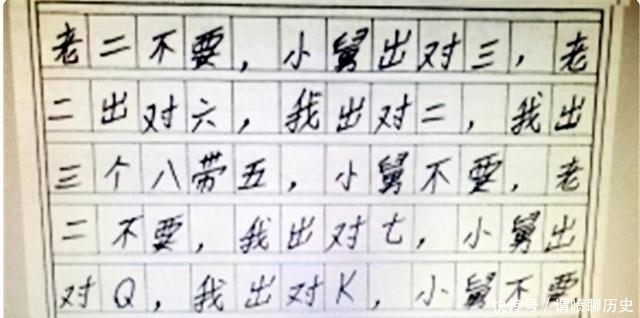 老二不要，小舅出对三，老
二出对六，我出对二，我出
三个八带五，小舅不要，老
二不要，我出对七，小舅出
对Q，我出对K，小舅不要
快传号／谓愤聊历史